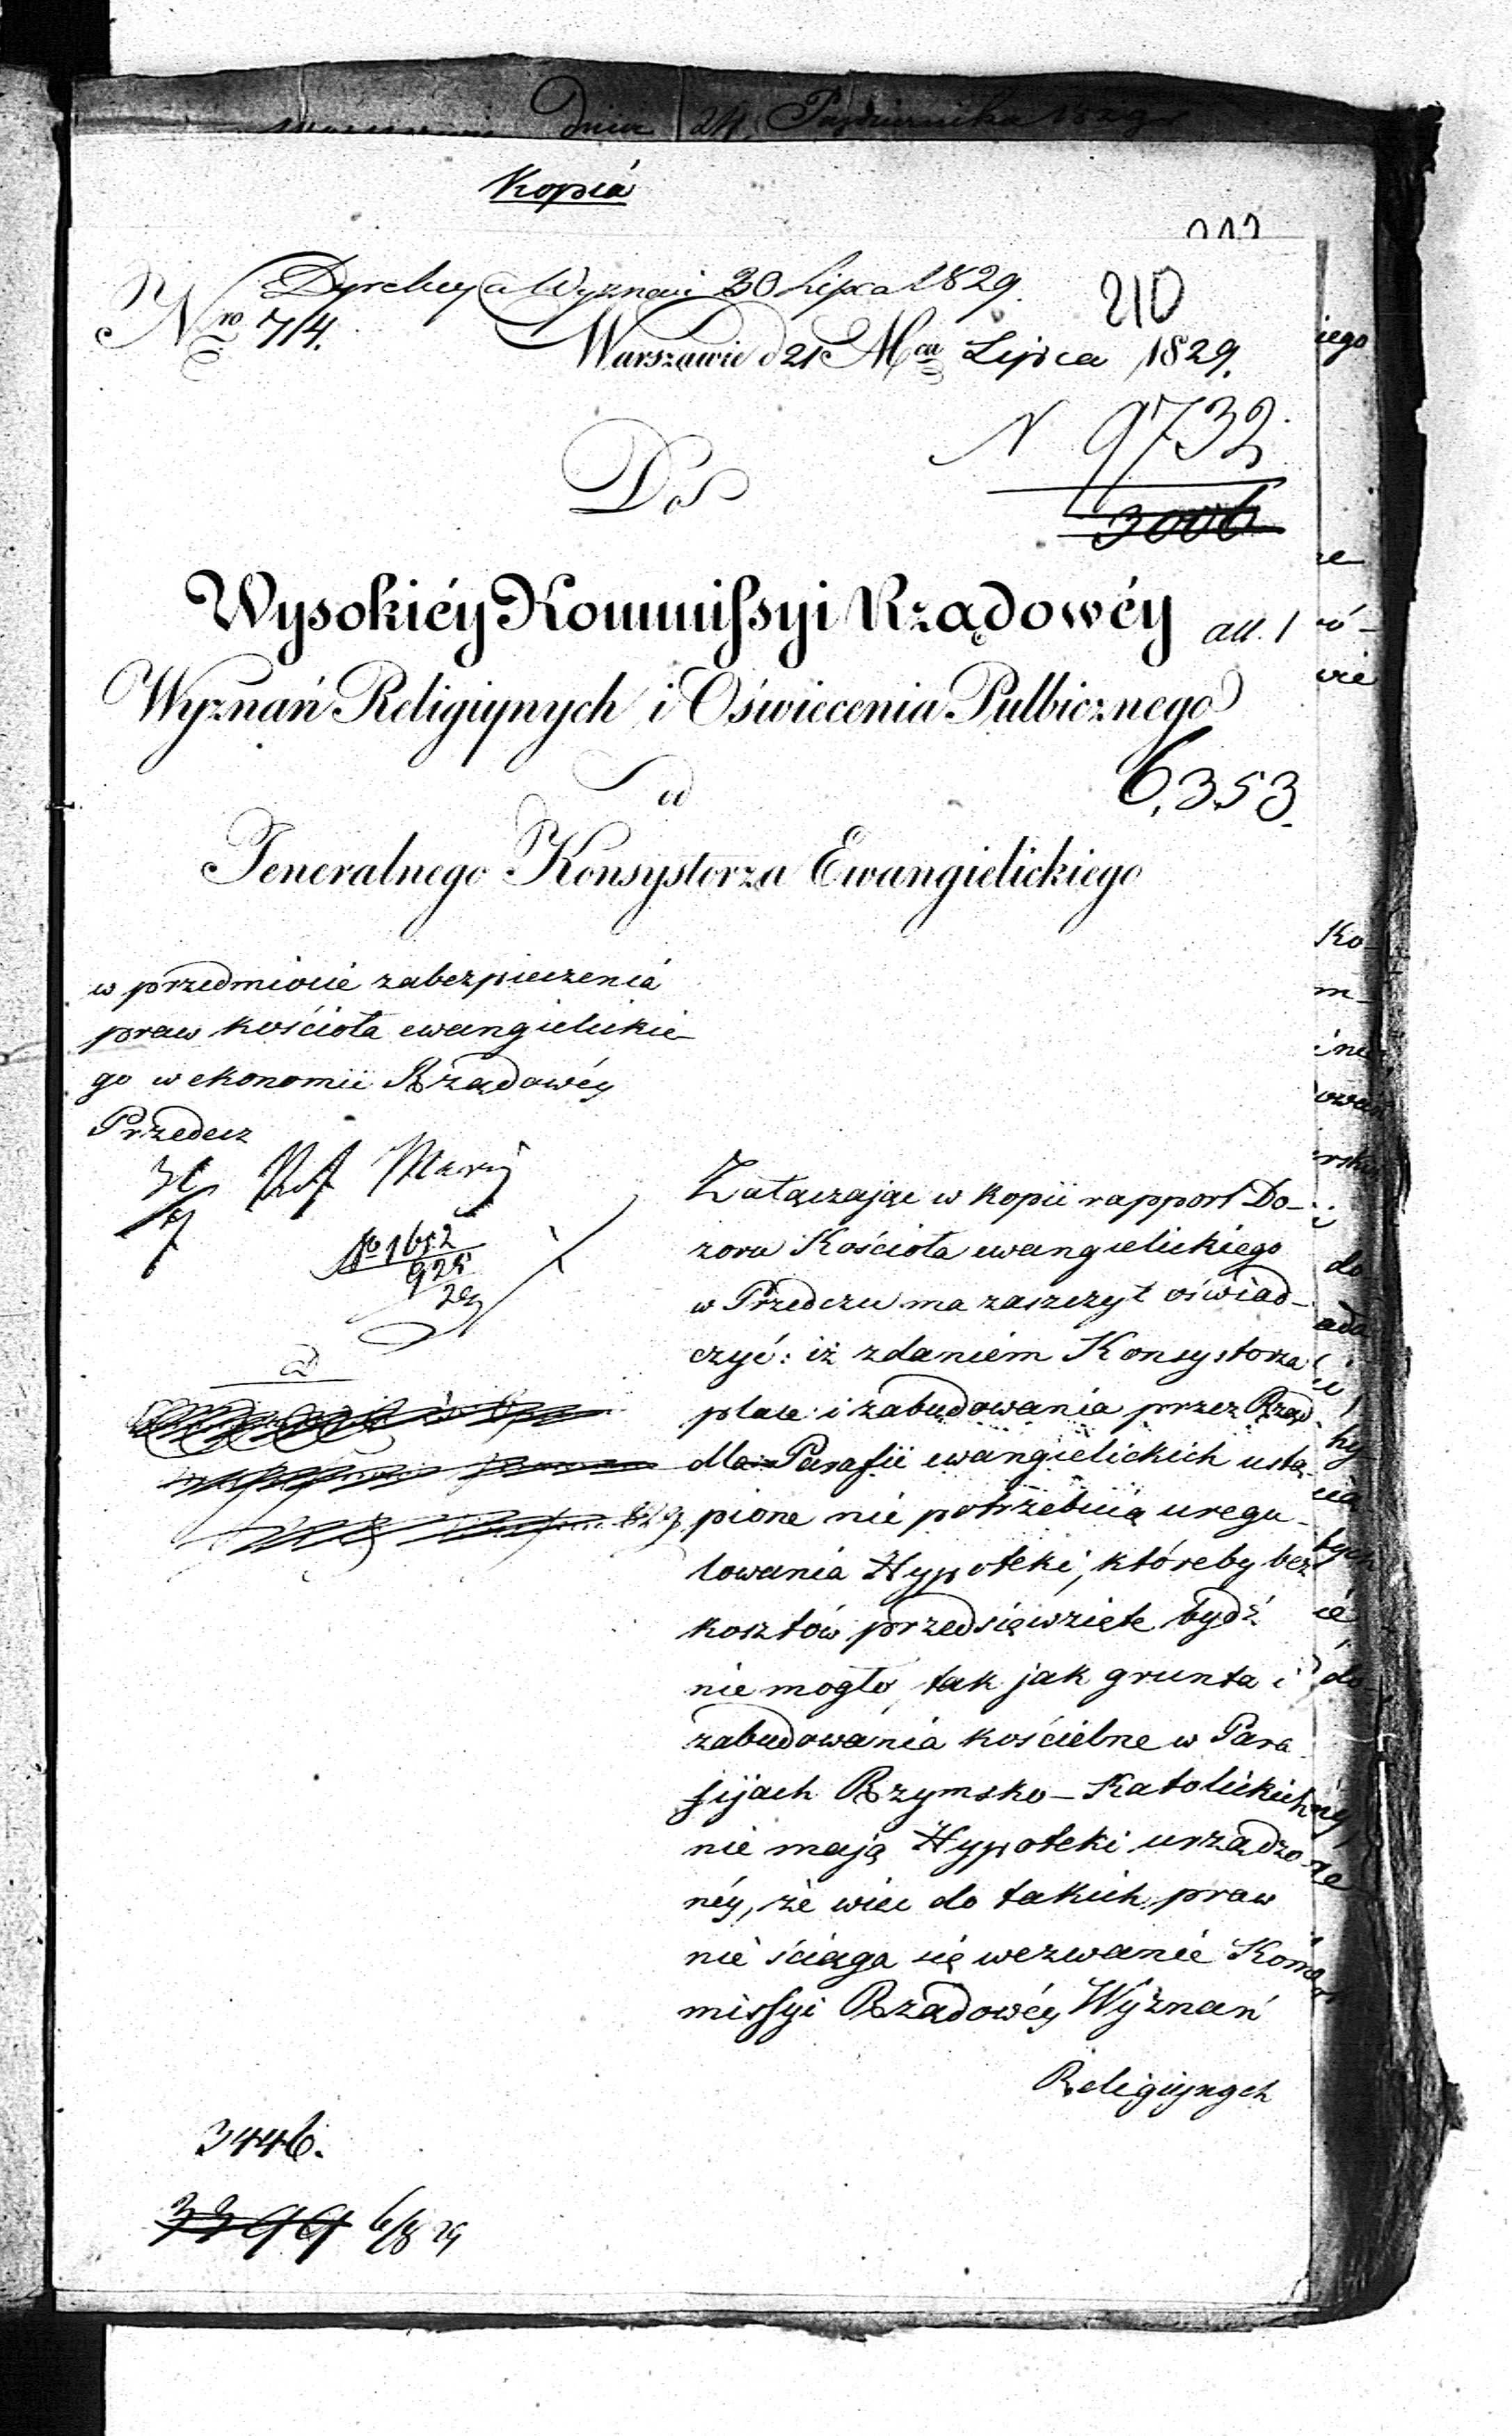 Dnia 24 Października 1829
Kopiá
210
Dyrekcya Wyznań 30 Lipca 1829.
Nro 714.
Warszawie d 21 Mca Lipca 1829.
N 9732
3006
Do
Wysokiéy Kommissyi Rządowéy
all. 1
Wyznań Religiynych i Oświecenia Pulbicznego
od
6,353.
Jeneralnego Konsystorza Ewangielickiego
w przedmiocie zabezpieczenia
praw kościoła ewangielickie-
go w ekonomii Rządowéy
Przedecz
No 1652
925
29
Załączaiąc w kopii rapport Do-
zoru Kościoła ewangielickiego
w Przedczu ma zaszczyt oświad-
czyć: iż zdaniem Konsystorza
place i zabudowania przez Rząd
dla Parafii ewangielickich ustą-
pione nie potrzebuią uregu-
lowania Hypoteki, któreby bez
kosztów przedsięwzięte bydź
nie mogło, tak jak grunta i
zabudowania kościelne w Para-
fijach Rzymsko-Katolickich
nie mają Hypoteki urządzo-
néy, że więc do takich praw
nie ściąga się wezwanie Kom-
missyi Rządowéy Wyznań
Religiynych
3446.
3299 6/8 29